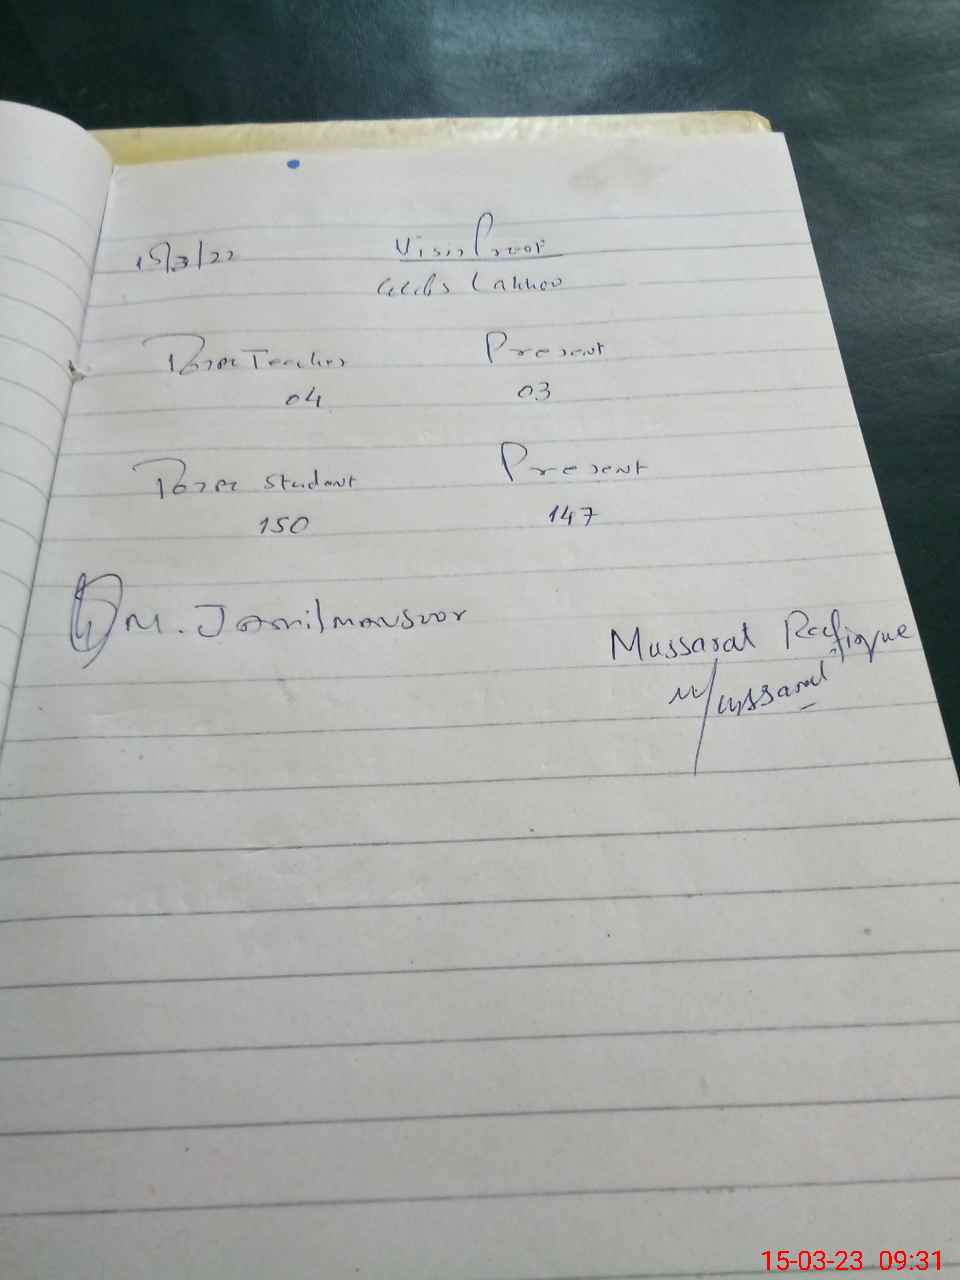 15/3/22 Visit Proof
GGCMS Lakhoo
Total Teacher Present
04 03
Total Student Present
150 147
M. Jamil mansoor
Mussarat Rafique
Mussarat
15-03-23 09:31